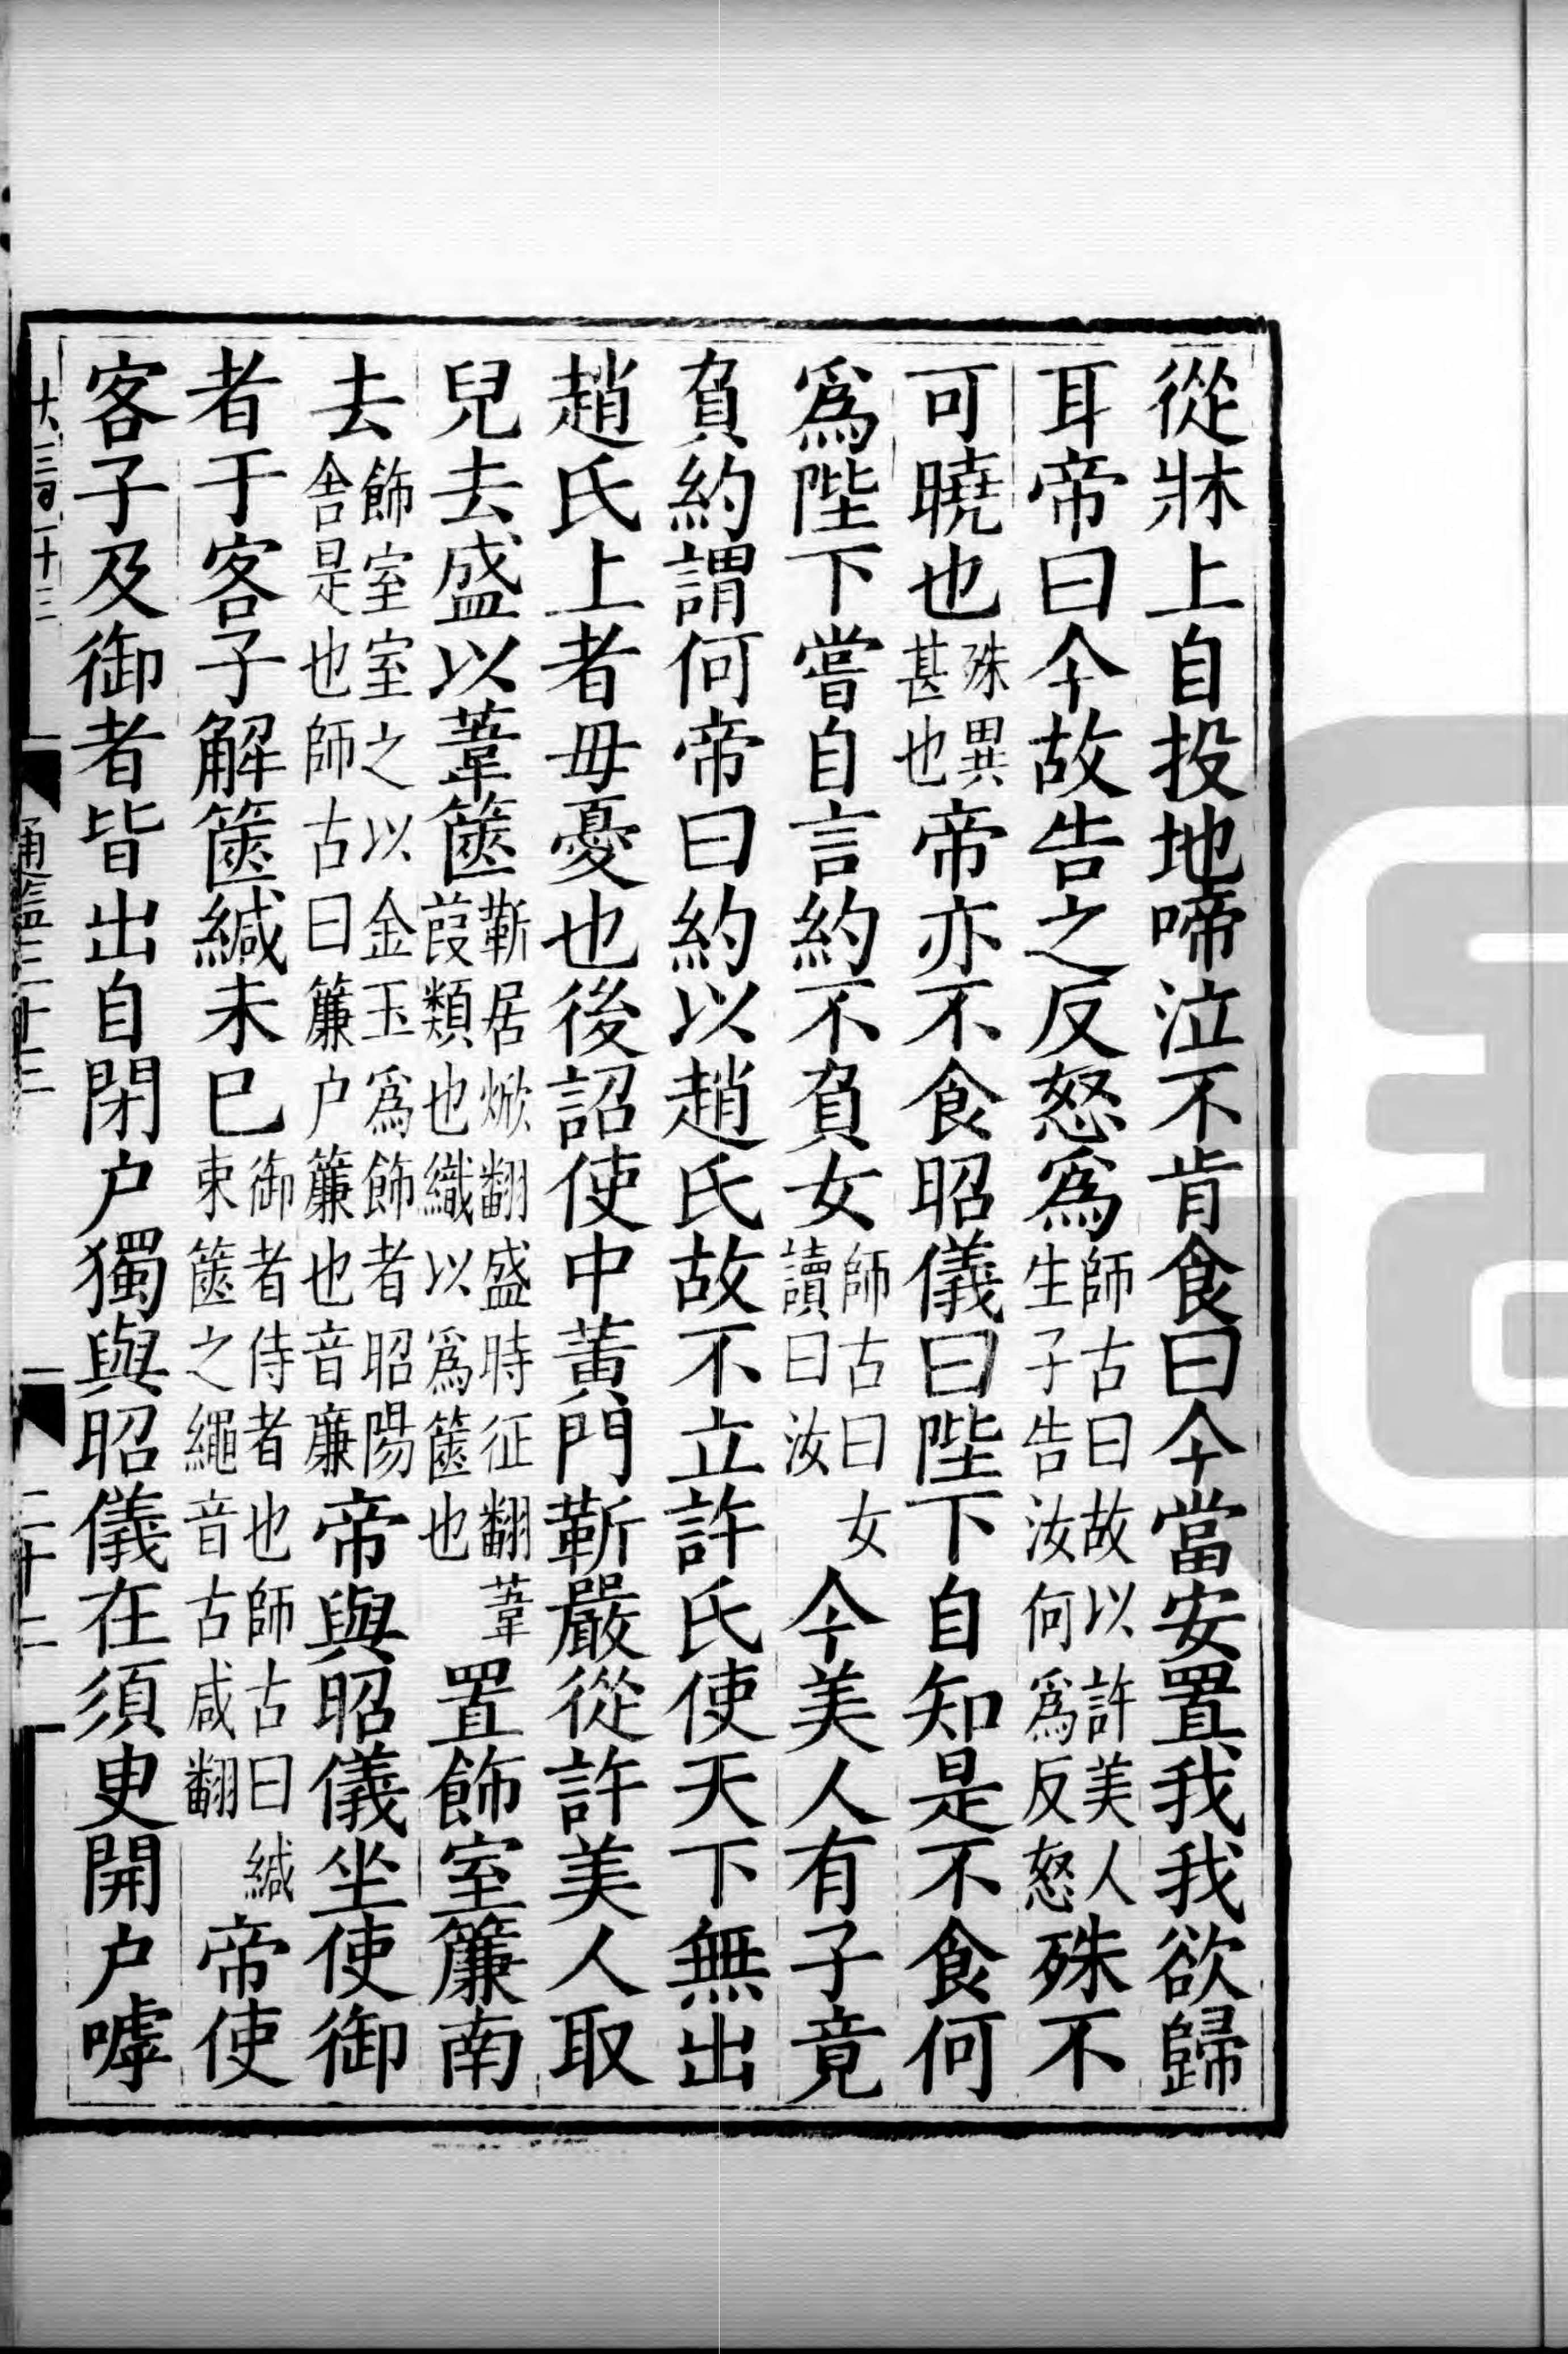 從牀上自投地啼泣不肯食曰今當安置我我欲歸
耳帝曰今故告之反怒爲師古曰故以許美人生子告汝何爲反怒殊不
可曉也殊異甚也帝亦不食昭儀曰陛下自知是不食何
爲陛下嘗自言約不負女師古曰女讀曰汝今美人有子竟
負約謂何帝曰約以趙氏故不立許氏使天下無出
趙氏上者毋憂也後詔使中黃門靳嚴從許美人取
兒去盛以葦篋靳居焮翻盛時征翻葦葭類也織以爲篋也置飾室簾南
去飾室室之以金玉爲飾者昭陽舍是也師古曰簾户簾也音廉帝與昭儀坐使御
者于客子解篋緘未已御者侍者也師古曰緘束篋之繩音古咸翻帝使
客子及御者皆出自閉户獨與昭儀在須臾開户嘑
大三百二十三
通鑑三十三
二十二